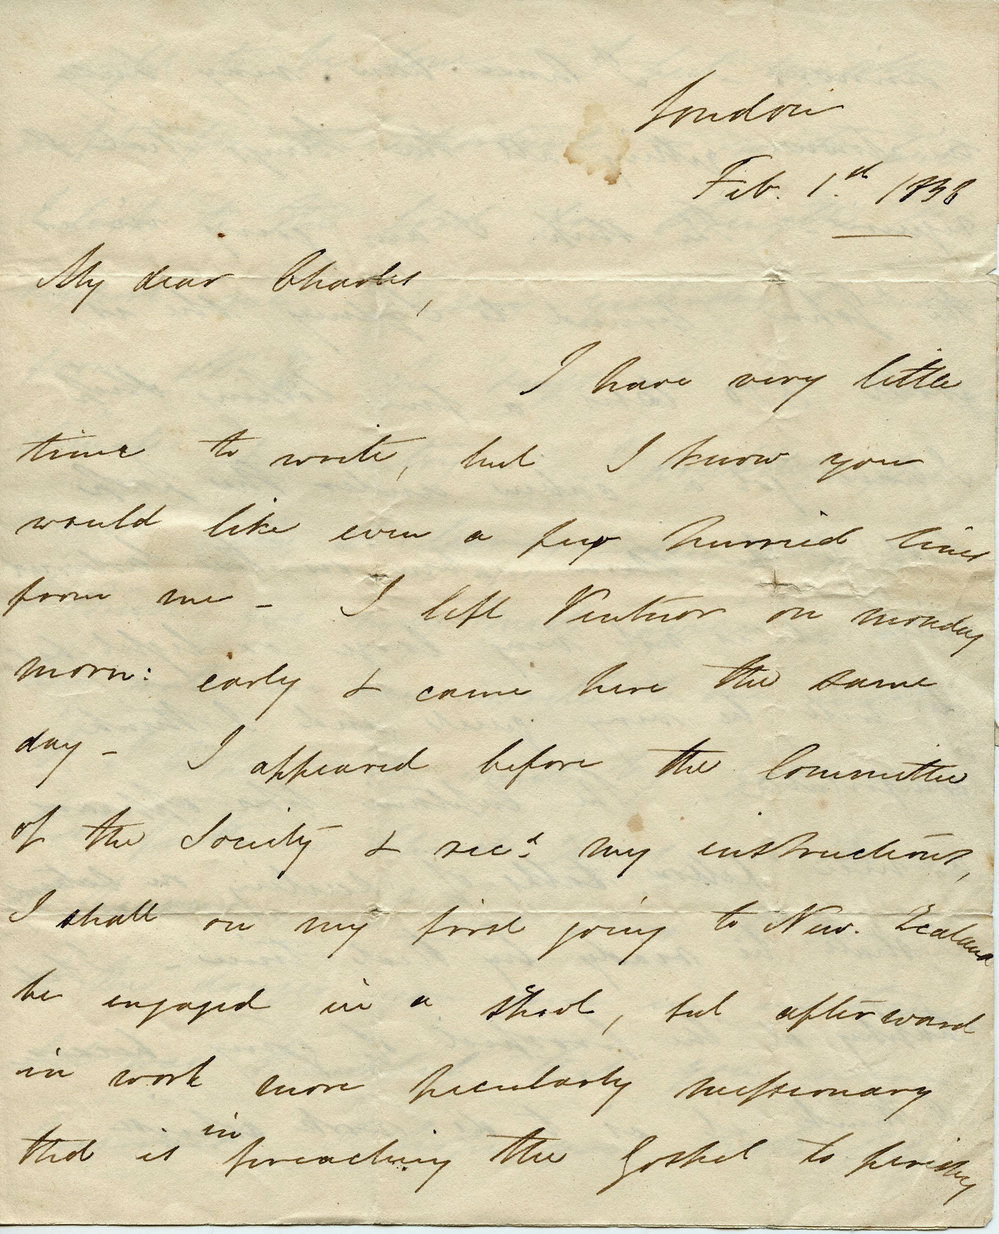 London
Feb. 1.st 1838
My dear Charles,
I have very little
time to write, but I know you
would like even a few hurried lines
from me - I left Ventnor on monday
morn: early & came here the same
day - I appeared before the Committee
of the Society & recd. my instructions,
I shall on my first going to New. Zealand
be engaged in a School, but afterward
in work more peculiarly missionary
that is in preaching the Gospel to perishg